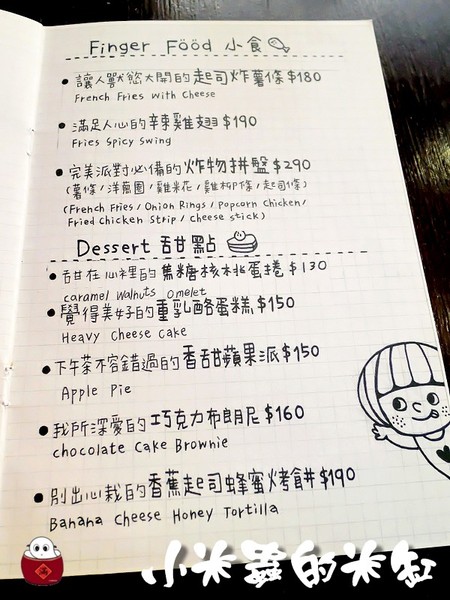 Finger Fööd 小食
讓人獸慾大開的起司炸薯條$180
French Fries with Cheese
滿足人心的辣雞翅$190
Fries Spicy Swing
完美派對必備的炸物拼盤$290
(薯條/洋蔥圈/雞米花/雞柳條/起司條)
(French Fries/Onion Rings/Popcorn Chicken/
Fried Chicken Strip/Cheese stick)
Dessert 甜點
甜在心裡的焦糖核桃蛋捲$130
caramel Walnuts Omelet
覺得美好的重乳酪蛋糕$150
Heavy Cheese Cake
下午茶不容錯過的香甜蘋果派$150
Apple Pie
我所深愛的巧克力布朗尼$160
chocolate Cake Brownie
別出心栽的香蕉起司蜂蜜烤餅$190
Banana Cheese Honey Tortilla
小米蟲的米缸